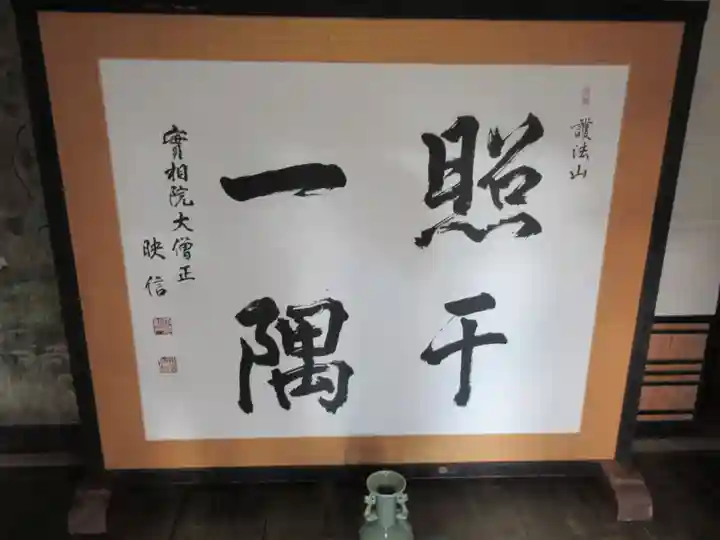 護法山
照千
一隅
實相院大僧正
映信